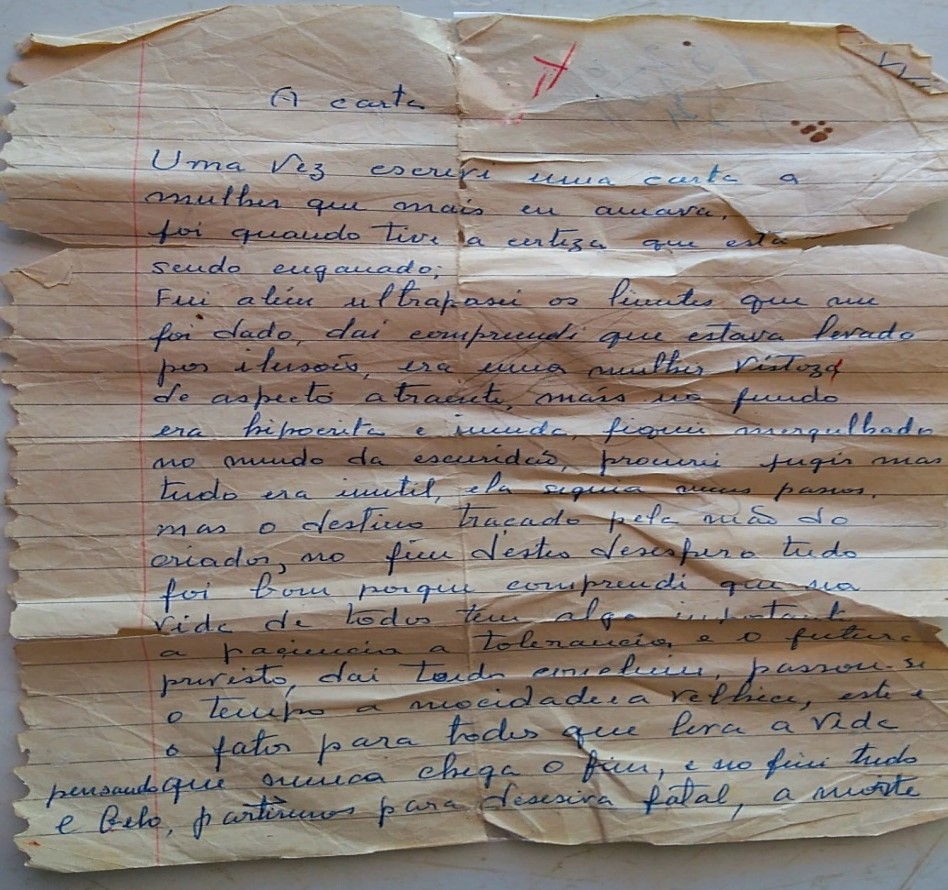 A carta
Uma vez escrevi uma carta a
mulher que mais eu amava.
foi quando tive a certeza que esta
sendo enganado;
Fui além ultrapasei os limites que me
foi dado, dai compreendi que estava levado
por ilusoís, era uma mulher vistoza
de aspecto atraente, máis no fundo
era hipocrita e imunda, fiquei mergulhado
no mundo da escuridão, procurei fugir mas
tudo era inutil, ela siguia meus passos.
mas o destino traçado pela mão do
criador, no fim déstes desespero tudo
foi bom porque compreendi que na
vida de todos tem algo importante
a paçiencia a tolerancia, e o futuro
previsto, dai tudo concluiu, passou-se
o tempo a mocidade e a velhice, este e
o fator para todos que leva a vida
pensando que nunca chega o fim, e no fim tudo
e belo, partimos para fatal, a morte